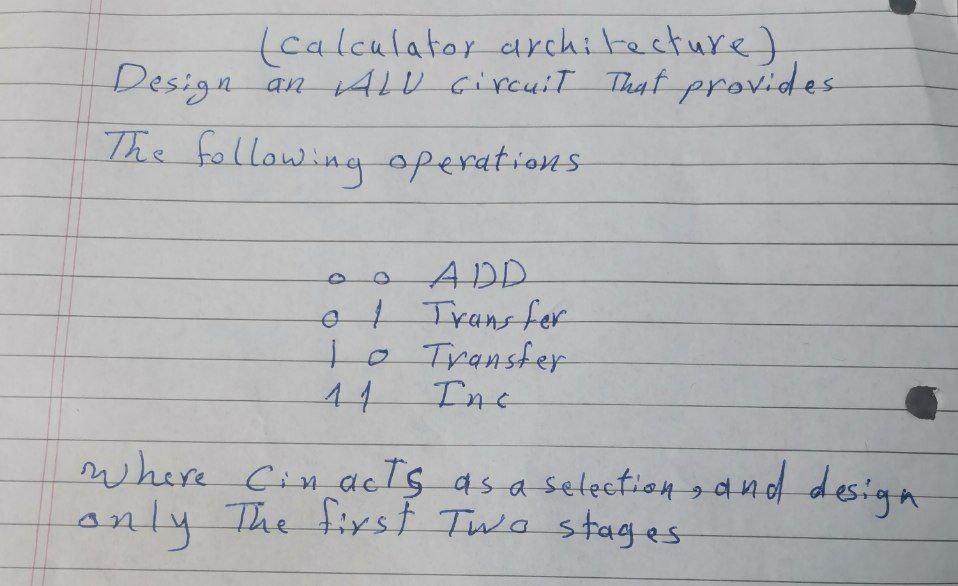 (calculator architecture)
Design an ALU circuit That provides
The following operations
0 0 ADD
0 1 Transfer
1 0 Transfer
1 1 Inc
where Cin acts as a selection, and design
only The first Two stages